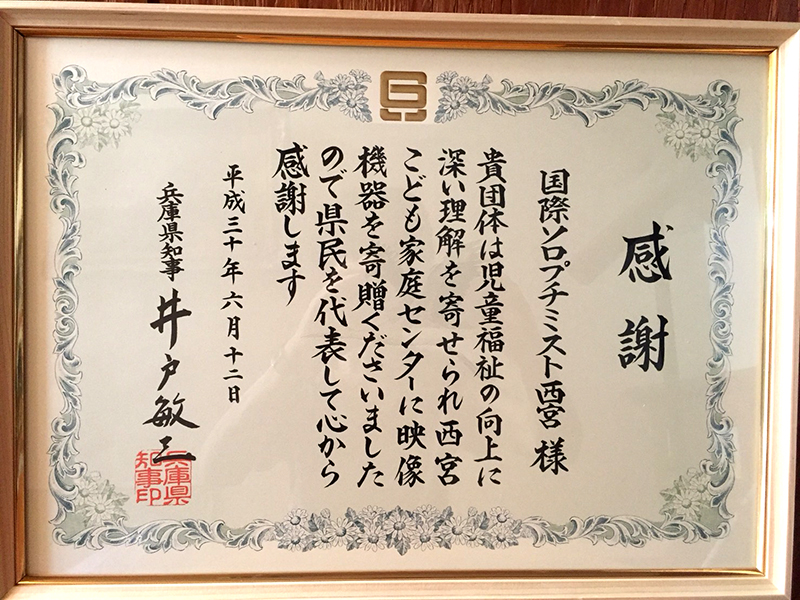 感謝
国際ソロプチミスト西宮 様
貴団体は児童福祉の向上に
深い理解を寄せられ西宮
こども家庭センターに映像
機器を寄贈くださいました
ので県民を代表して心から
感謝します
平成三十年六月十二日
兵庫県知事 井戸敏三
兵庫県
知事印